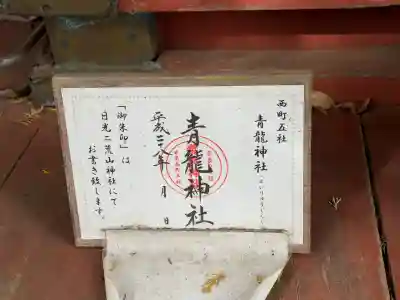 西町五社
青龍神社
青龍神社
平成二十八年 月 日
「御朱印」は
日光二荒山神社にて
お書き致します。